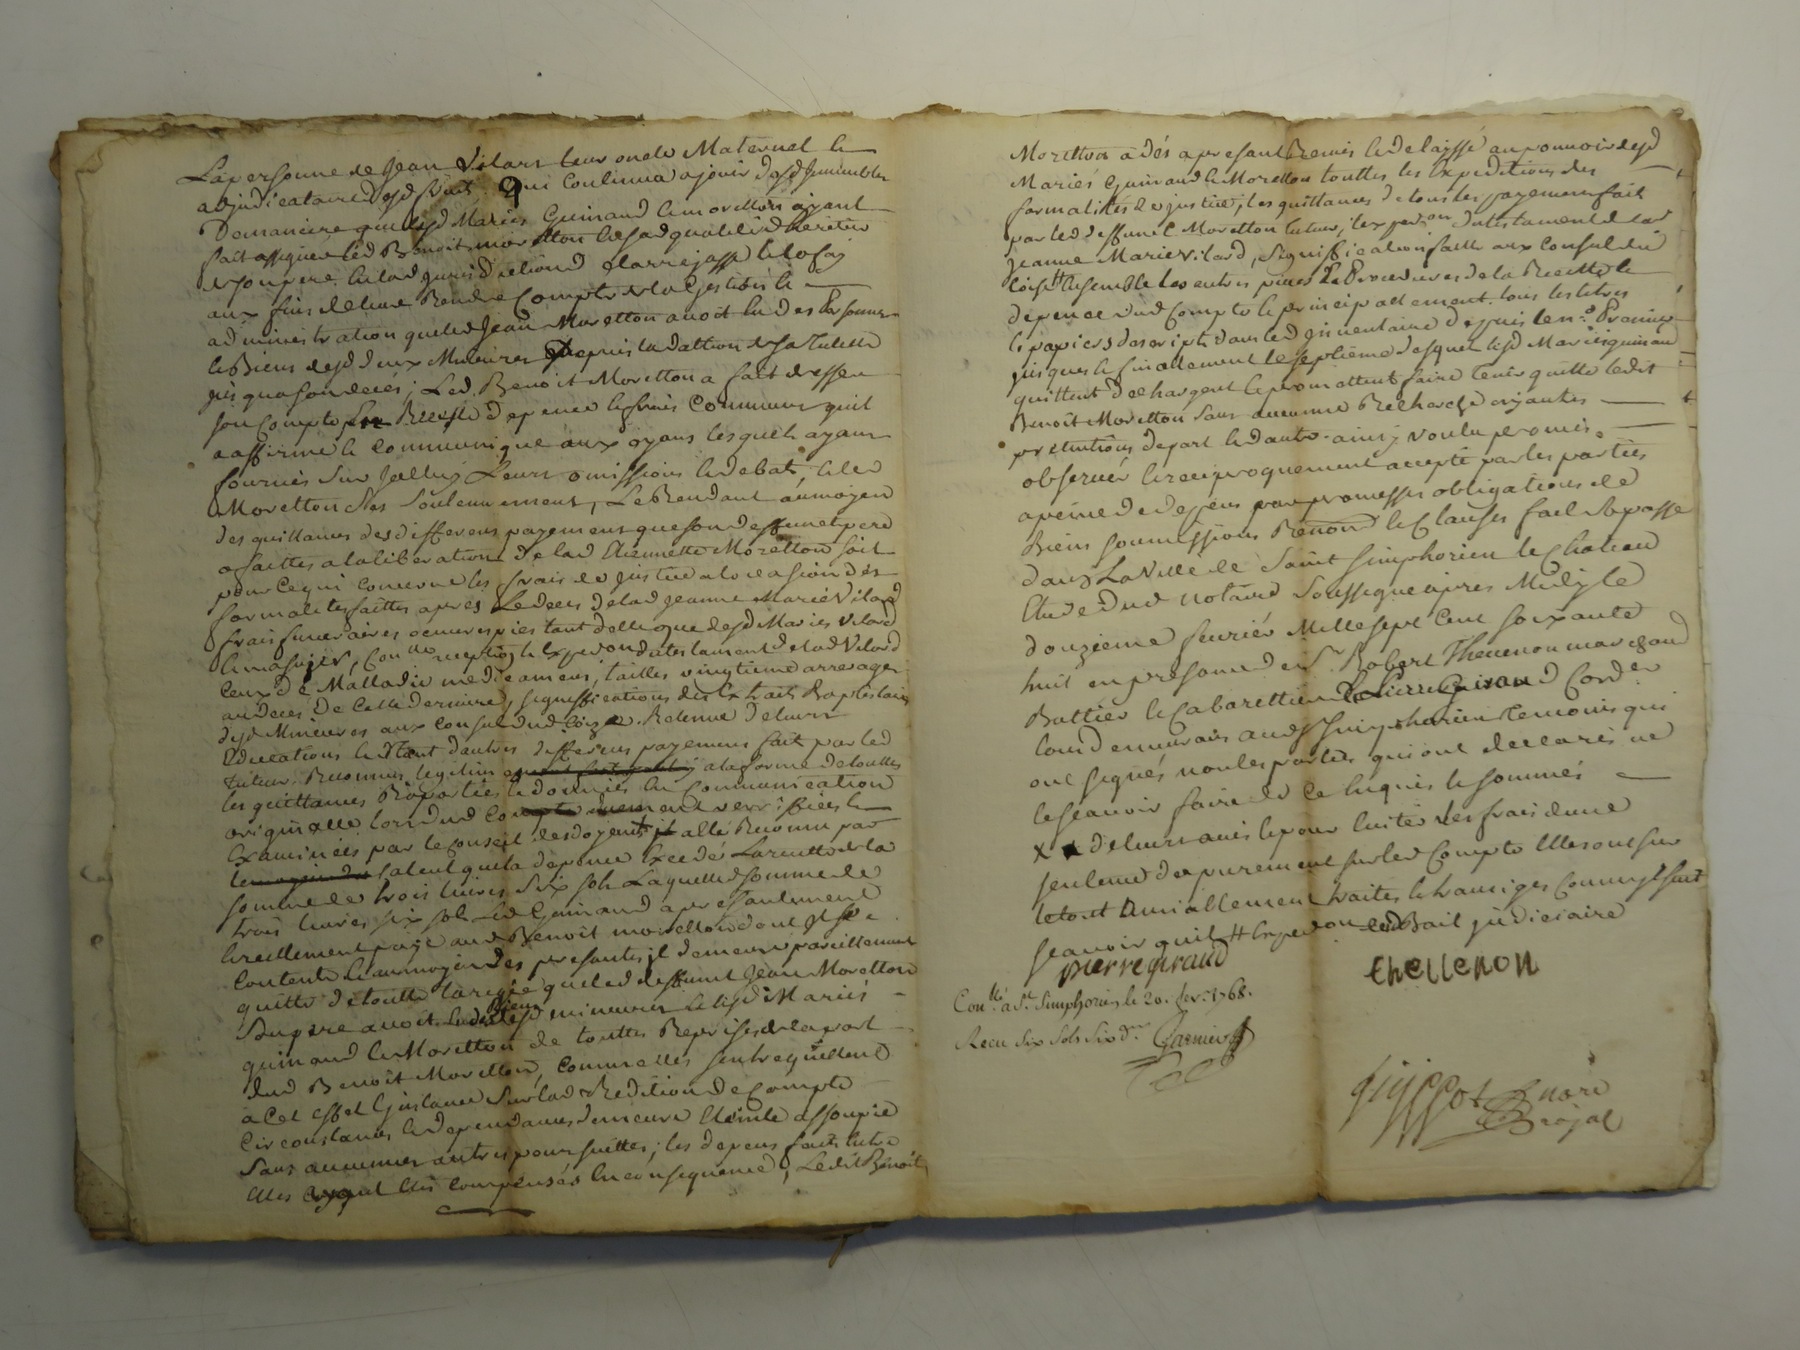 La personne de Jean Vilars leur oncle Maternel &
adjudicataire desd fruits Qui Continua a jouir desd Jmmeubles
Demaniere que lesd Mariés Guinand & moretton ayant
fait assigner led Benoit moretton en sad qualité d'heritier
de son pere en lad jurisdiction d
aux fins de leur Rendre Compte de la Gestion &
administration que led Jean Moretton avoit eu des Personnes
& Biens desd deux Mineures depuis la dattion de sa Tutelle
jusqua son deces; Led. Benoit Moretton a fait dresser
son Compte en Recette depence & frais Communs quil
a affirmé & communiqué aux oyans lesquels ayant
fournis sur Jcelluy Leurs omissions & debats, & led
Moretton ses soutenements, Le Rendant au moyen
des quittances des differens payemens que son deffunt pere
a faittes a la liberation de lad Etiennette Moretton soit
pour Ce qui Concerne les frais de justice a loccasion des
formalites faittes apres Le deces de lad Jeanne Marie Vilard
frais funeraires oeuvres pies tant d'elle que desd Maries Vilard
& masuyer, Con.lle reception & Expedon du testament de lad Vilard
Ceux de Malladie medicamens, tailles vingtieme arrerages
au deces de Cette derniere, significations des Extraits Baptistaires
desd Mineures aux Consuls dud Retenue de leurs
Educations & dtant d'autres differens payemens fait par led
tuteur Reconnus legitimes a la forme de touttes
les quittances Raportées & données en Communication
originelle lors dud Compte duement verriffiées &
Examinées par le Conseil desd oyants il allé Reconnu par
Jcelent que la depence Excede La recette de la
somme de trois livres six sols Laquelle d somme de
trois livres six sols Led Guinand a presentement
& reellement payé aud Benoit moretton dont Jl se
Contente & au moyen des presentes il demeure pareillement
quitte de toutte la regie que led deffunt Jean Moretton
Son pere avoit eu des Biens desd mineures & lesd Mariés
guinand & Moretton de touttes Reprises de la part
dud Benoit Moretton, Comme elles sentrequittent
a Cet effet Ljnstance sur lad Redition de Compte
Circonstances & dependances demeure Eteinte assoupie
Sans aucunes autres poursuittes; les depens faits Entre
Elles Compensés En consequence, Ledit Benoit
Moretton a dès apresant Remis & delaissé au pouvoir desd
Mariés Guinand & Moretton touttes les Expeditions des
formalités de justice, les quittances de tous les payemens faits
par led deffunt Moretton tuteur, lexpedon du testament de lad
Jeanne Marie Vilard, Signiffication faitte aux Consuls du
Ensemble les autres pieces & Procedures de la Recette &
depence dud Compte & principallement tous les titres
& papiers descripts dans led jnventaire depuis le n.o Premier
jusques & finallement le septieme desquels lesd Mariés guinand
quittent dechargent & promettent faire tenir quitte ledit
Benoit Moretton sans aucune Recherche
pretentions de part & dautre ainsy voulu promis
observer & reciproquement accepté par les parties
a peine de depens par promesses obligations de
Biens soumissions Renond & Clauses fait & passe
dans La Ville de Saint Simphorien le Chateau
Etude dud notaire Soussigné apres Midy le
douzieme fevrier Mille sept Cent soixante
huit en presence de Sr Robert Thevenon marchand
Battier & Cabarettier & Pierre Giraud Cord.er
tous demeurans aud St Simphorien temoins qui
ont signés non les parties qui ont declarés ne
le sçavoir faire de Ce Enquis & sommés
x de leurs avis & pour Eviter les frais dune
seulement d'apurement sur led Compte Elles ont sur
le tout amiablement traités & transiges Comme sensuit
sçavoir quil # Expedon dud Bail judiciaire
pierre giraud
thellenon
Con.llé a St. Simphorien le 20. fev. 1768.
Recu six Sols Six d.rs Garnier